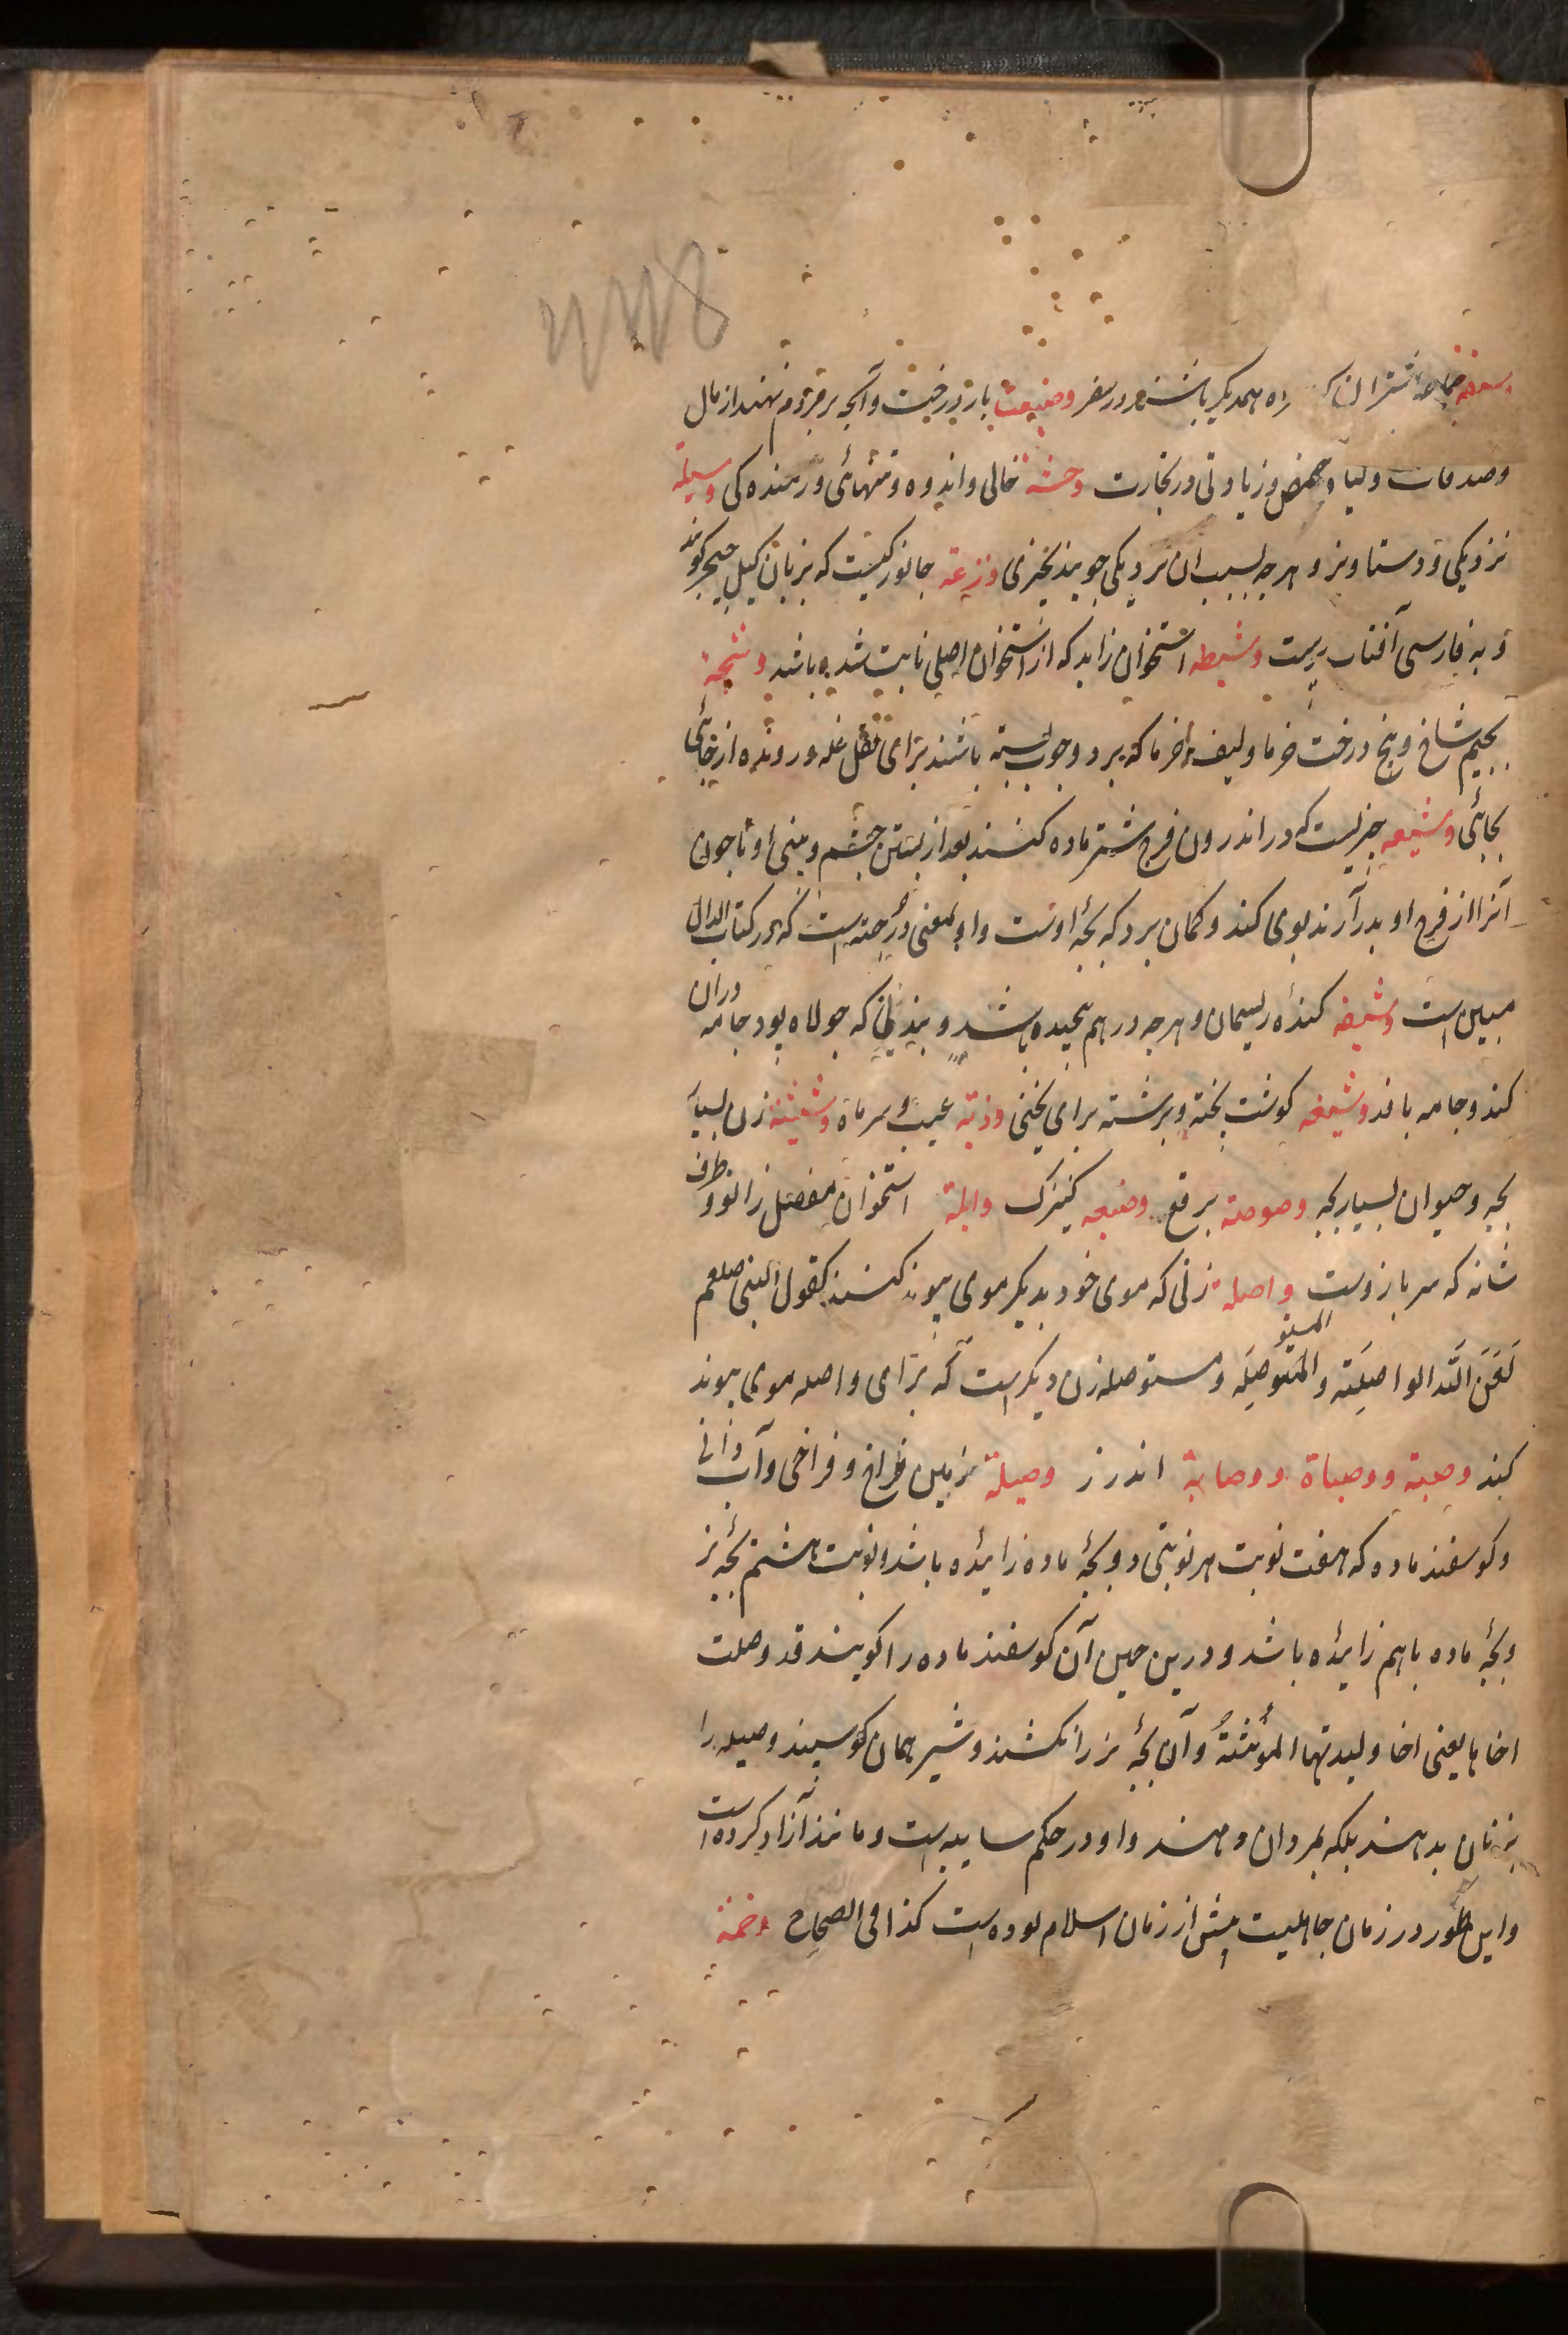 جماعه شتران که راه همدیگر باشند و در سفر وضیعت بار درخت و آنچه بر مردم نهند از مال
وصدمات و گیاه حمض و زیادتی در تجارت وحشة خالی و اندوه و تنهائی و رمنده کی وسیلة
نزدیکی و دستاویز و هرچه بسبب ان نزدیکی جویند بچیزی وزغة جانوریست که بزبان گیل گویند
و به فارسی آفتاب پرست وشیظه استخوان زاید که از استخوان اصلی ثابت شده باشد وشیجة
بجیم شاخ و بیخ درخت خرما و لیف خرما که بر دو چوب بسته باشند برای نقل غله درونده از جائی
بجائی وشیعه چیزیست که در اندرون فرج شتر ماده کنند بعد از بستن چشم و بینی او تا چون
آنرا از فرج او بدر آرند بوی کند و گمان برد که بچهٔ اوست و او بمعنی درجة است که در کتاب الدال
مبین است وشیعه کندهٔ ریسمان و هرچه در هم پیچیده باشد و بندی که جولاه پود جامه دران
کند و جامه بافد وشیغه گوشت پخته و برشته برای یخنی وذیة عیب و سرماة زن بسیار
بچه و حیوان بسیار بچه وصوصة برقع وضیعه کنیزک وابلة استخوان مفصل زانو و طرف
شانه که سر بازوست واصلة زنی که موی خود بدیگر موی پیوند کند کقول النبی صلعم
لَعَنَ اللّه الواصِلَة و المستوصِلَه و مستوصله زن دیگر است که برای واصله موی پیوند
کند وصیة ووصاة ووصایة اندرز وصیلة زمین فراخ و فراخی و آب وانی
و گوسفند ماده که هفت نوبت هر نوبتی دو بچهٔ ماده زائیده باشد و نوبت هشتم بچهٔ نر
و بچهٔ ماده باهم زائیده باشد و درین حین آن گوسفند ماده را گویند قد وصلت
اخاها یعنی اخا ولیدتها المؤنثةُ و آن بچهٔ نر را نکشند و شیر همان گوسپند وصیله را
بزنان ندهند بلکه بمردان دهند و او در حکم سایبه است و مانند آزاد کرده است
و این طور در زمان جاهلیت پیش از زمان اسلام بوده است کذا فی الصحاح وخمة